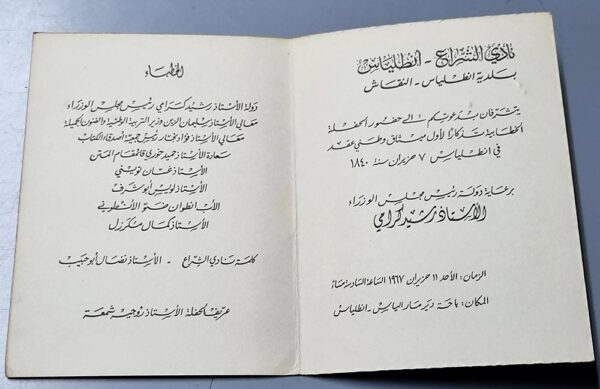 نادي الشراع - انطلياس
بلدية انطلياس - النقاش
يتشرفان بدعوتكم الى حضور الحفلة
الخطابية تذكارًا لأول ميثاق وطني عقد
في انطلياس ٧ حزيران سنة ١٨٤٠
برعاية دولة رئيس مجلس الوزراء
الأستاذ رشيد كرامي
الزمان: الأحد ١١ حزيران ١٩٦٧ الساعة السادسة مساء
المكان: باحة دير مار الياس - انطلياس
الخطباء
دولة الأستاذ رشيد كرامي رئيس مجلس الوزراء
معالي الأستاذ سليمان الزين وزير التربية الوطنية والفنون الجميلة
معالي الأستاذ فؤاد بخار رئيس جمعية أصدقاء الكتاب
سعادة الأستاذ حميد خوري قائمقام المتن
الأستاذ غسان تويني
الأستاذ لويس أبو شرف
الأب انطوان ضو الأنطوني
الأستاذ كمال
كلمة نادي الشراع - الأستاذ نضال أبو حبيب
عريف الحفلة الأستاذ روجيه شمعة